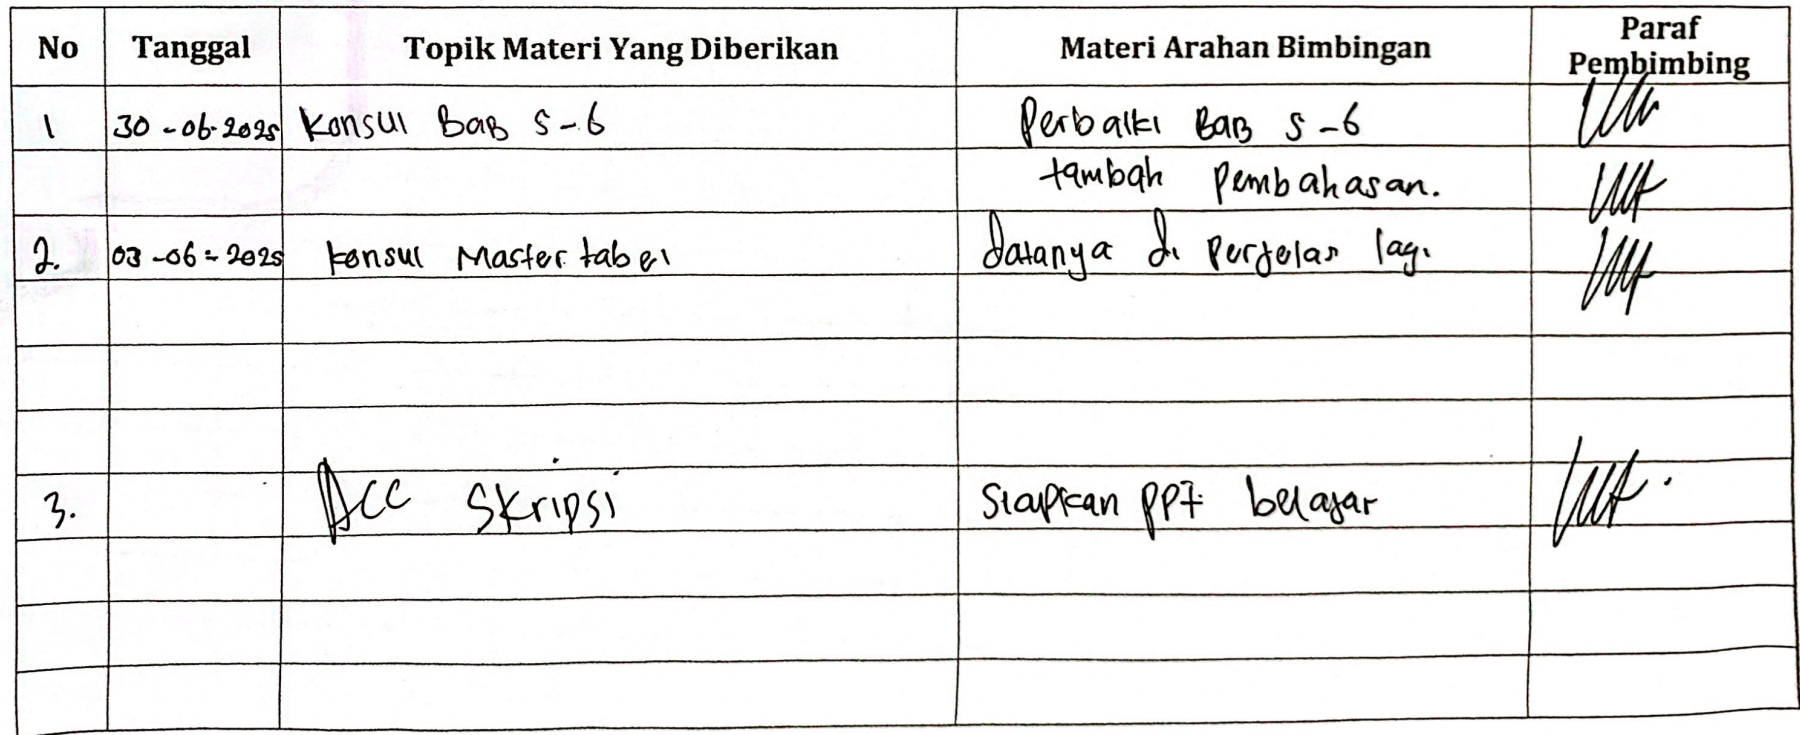 No Tanggal Topik Materi Yang Diberikan Materi Arahan Bimbingan Paraf Pembimbing
1 30-06-2025 Konsul BAB 5-6 Perbaiki BAB 5-6
tambah Pembahasan.
2. 03-06-2025 Konsul Master tabel datanya di perjelas lagi
3. Acc Skripsi Siapkan PPT belajar